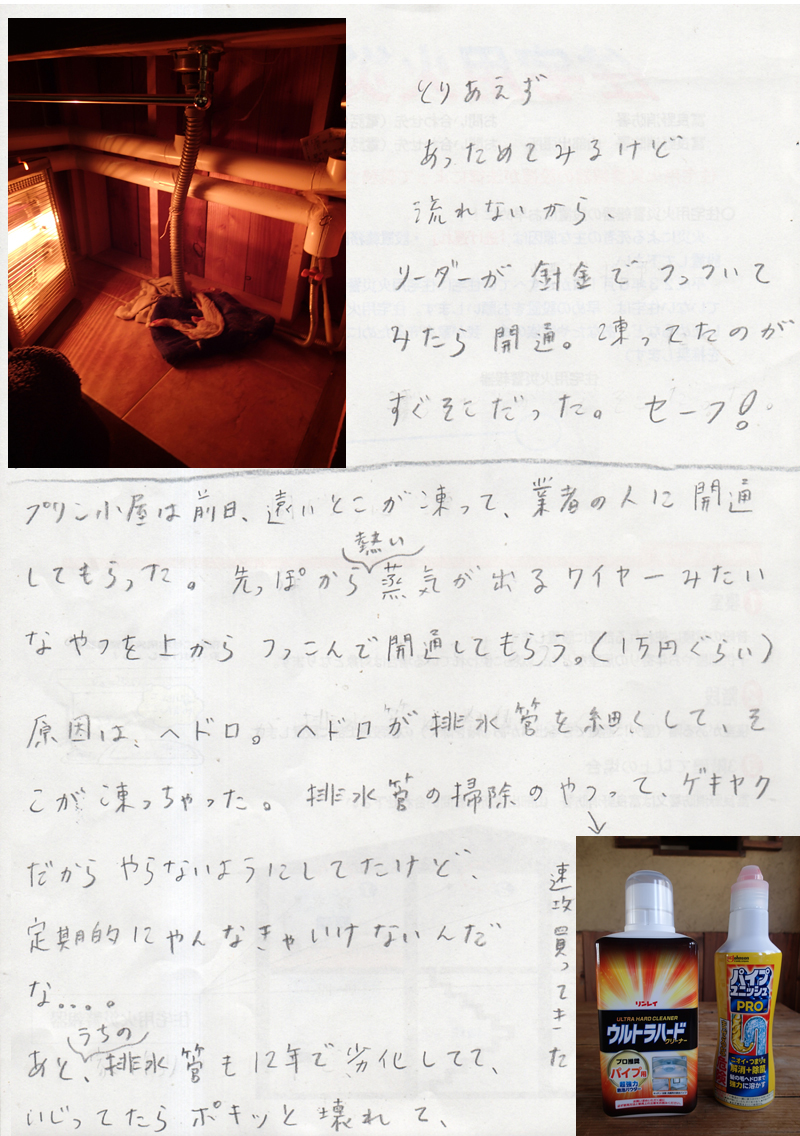 とりあえず
あっためてみるけど
流れないから、
リーダーが 針金で つっついて
みたら 開通。凍ってたのが
すぐそこだった。 セーフ!
プリン小屋は前日、遠いとこが凍って、業者の人に開通
熱い
してもらった。 先っぽから蒸気が出るワイヤーみたい
なやつを上から つっこんで開通してもらう。(1万円ぐらい)
原因は、ヘドロ。ヘドロが排水管を細くして、そ
こが凍っちゃった。 排水管の掃除のやつって、ゲキヤク
だから やらないようにしてたけど、
定期的にやんなきゃいけないんだ
な...。
うちの
あと、排水管も12年で劣化してて、
いじってたら ポキッと壊れて、
速攻買ってきた
リンレイ
ULTRA HARD CLEANER
ウルトラハード
クリーナー
プロ推奨
パイプ用
超強力
Johnson
パイプ
ユニッシュ
PRO
ニオイ・つまりを
解消+除菌
髪の毛ヘドロまで
強力に溶かす